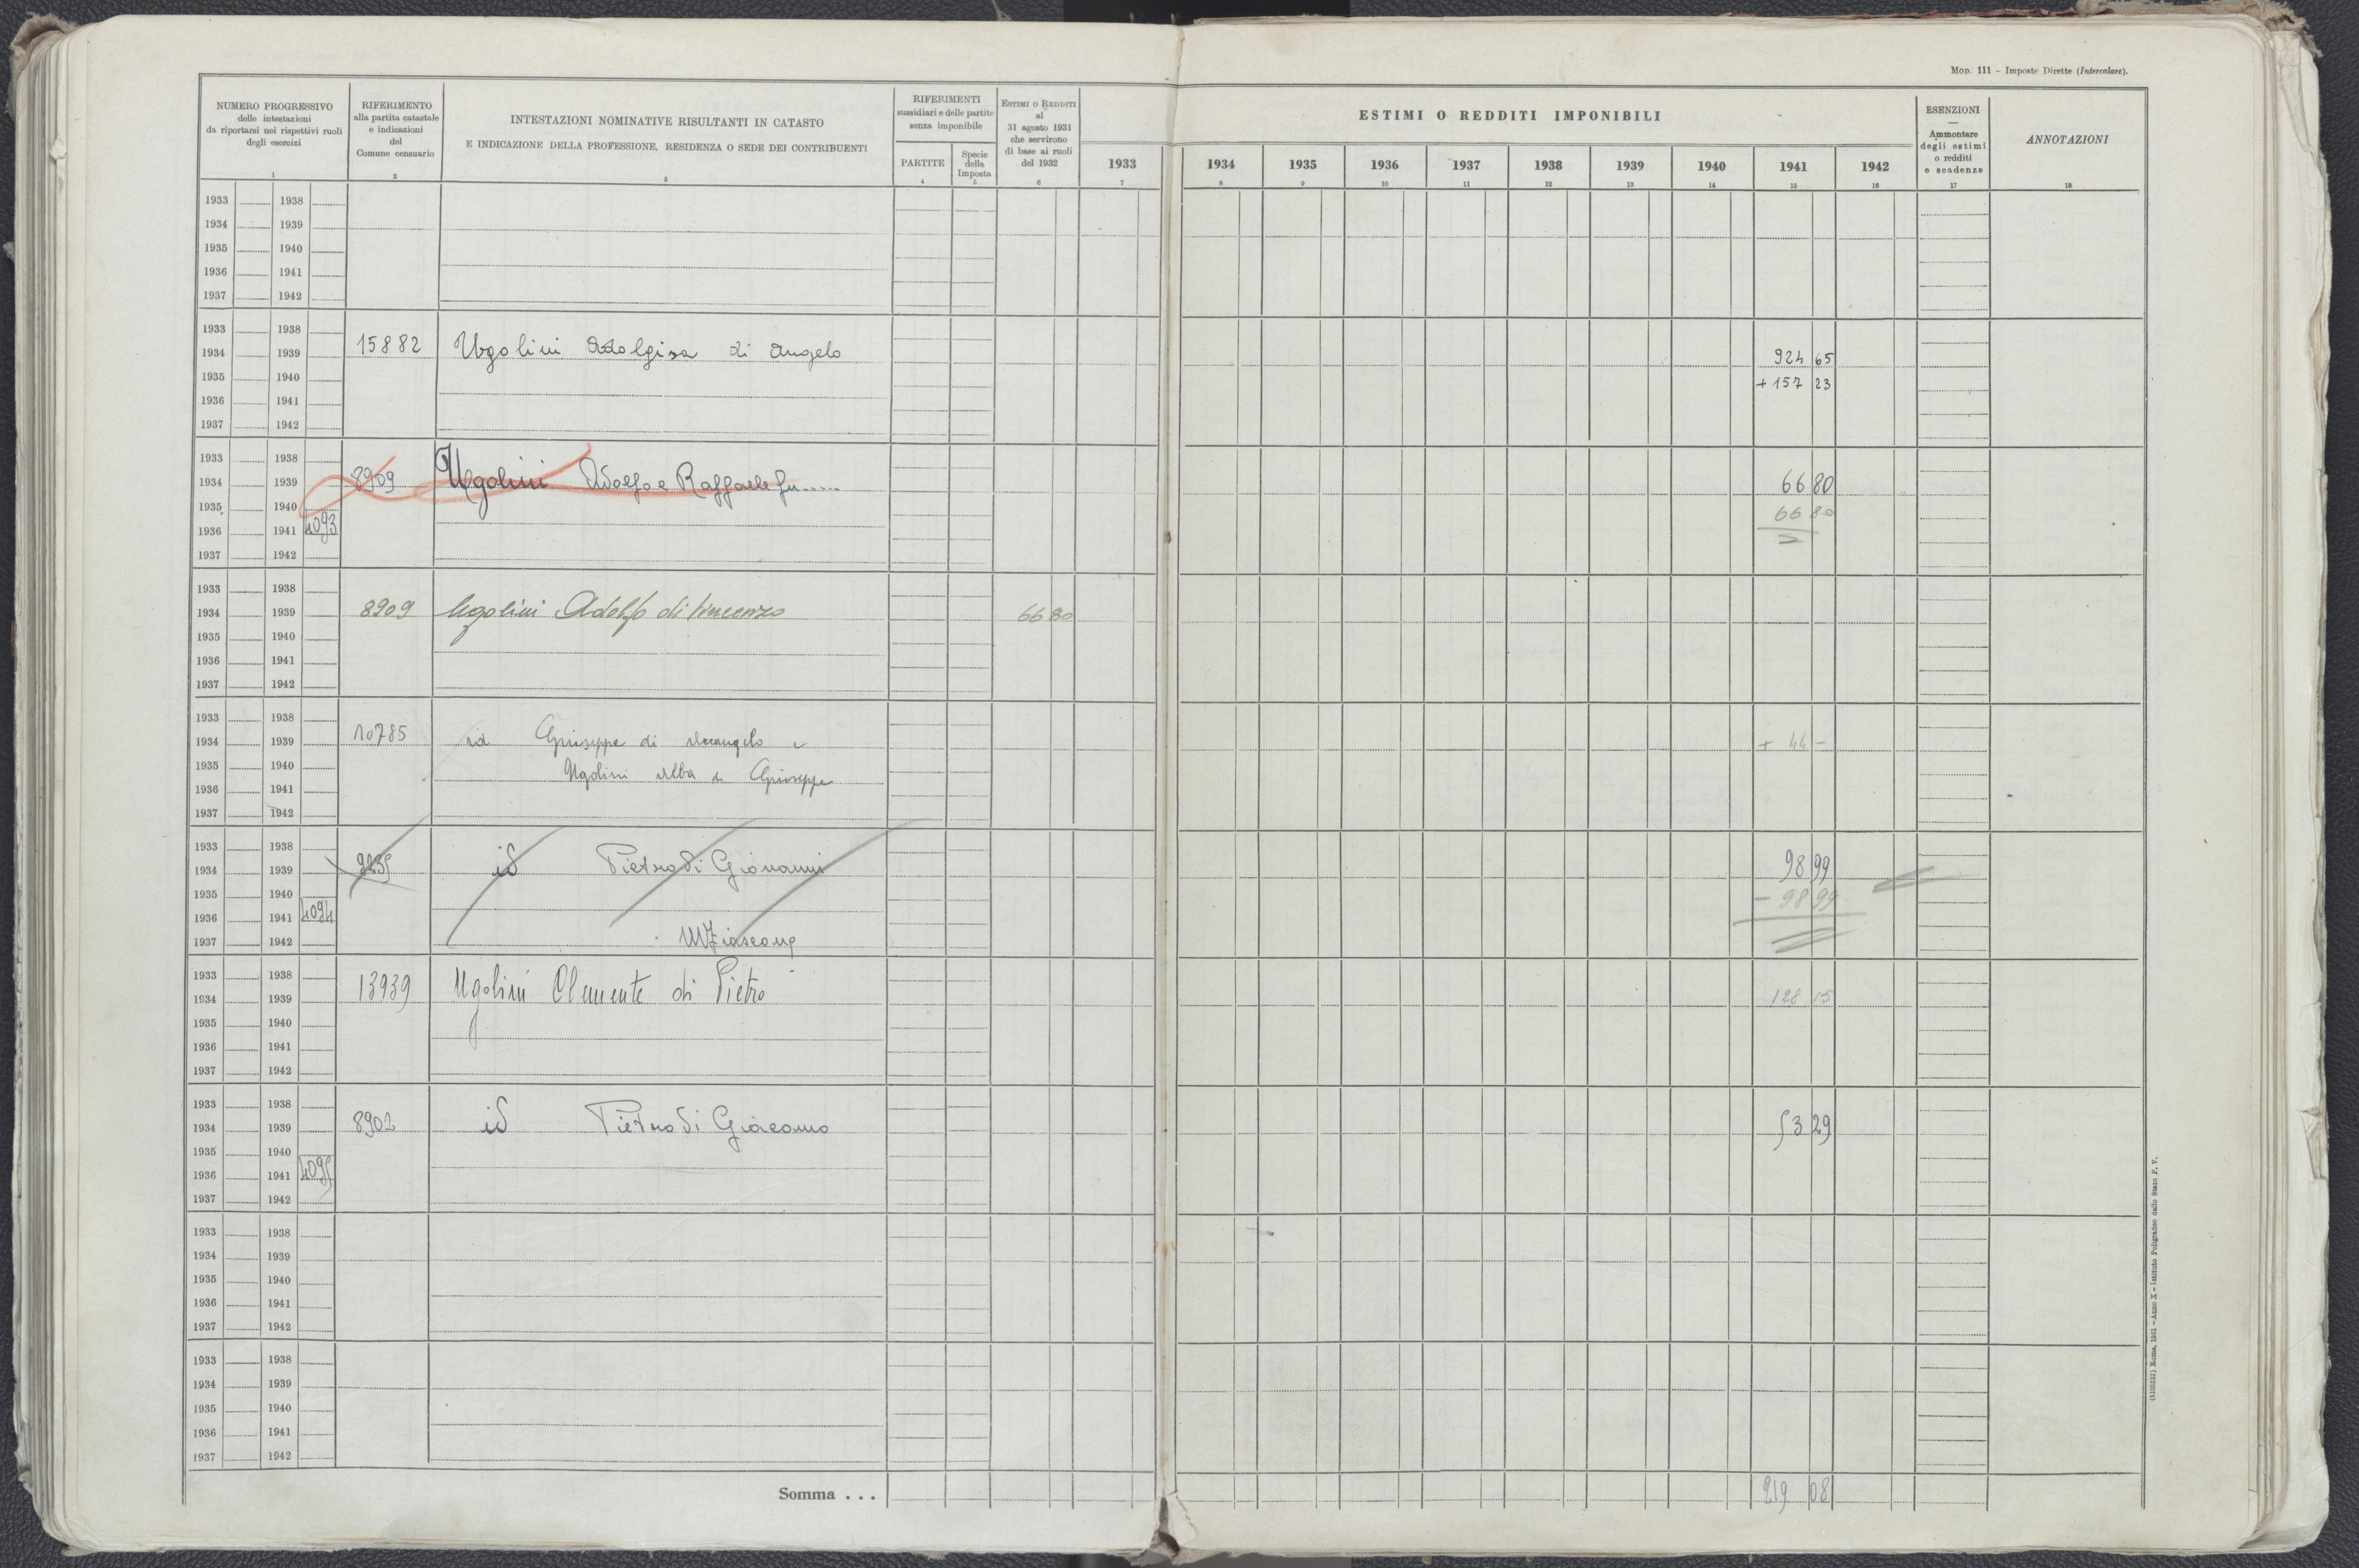 MOD. 111 – Imposte Dirette (Intercalare).
NUMERO PROGRESSIVO
delle intestazioni
da riportarsi nei rispettivi ruoli
degli esercizi
1
RIFERIMENTO
alla partita catastale
e indicazioni
del
Comune censuario
2
INTESTAZIONI NOMINATIVE RISULTANTI IN CATASTO
E INDICAZIONE DELLA PROFESSIONE, RESIDENZA O SEDE DEI CONTRIBUENTI
3
RIFERIMENTI
sussidiari e delle partite
senza imponibile
PARTITE
4
Specie
della
Imposta
5
ESTIMI O REDDITI
al
31 agosto 1931
che servirono
di base ai ruoli
del 1932
6
ESTIMI O REDDITI IMPONIBILI
1933 1934 1935 1936 1937 1938 1939 1940 1941 1942
7 8 9 10 11 12 13 14 15 16
ESENZIONI
—
Ammontare
degli estimi
o redditi
e scadenze
17
ANNOTAZIONI
18
1933 1938
1934 1939
1935 1940
1936 1941
1937 1942
1933 1938
1934 1939 15882 Ugolini Adalgisa di Angelo 924 65
1935 1940 + 157 23
1936 1941
1937 1942
1933 1938
1934 1939 8909 Ugolini Adolfo e Raffaele fu..... 66 80
1935 1940 66 80
1936 1941 4093
1937 1942
1933 1938
1934 1939 8909 Ugolini Adolfo di Vincenzo 66 80
1935 1940
1936 1941
1937 1942
1933 1938
1934 1939 10785 id Giuseppe di Arcangelo e + 44 –
1935 1940 Ugolini Alba di Giuseppe
1936 1941
1937 1942
1933 1938
1934 1939 9235 id Pietro di Giovanni 98 99
1935 1940 – 98 99
1936 1941 4094
1937 1942
1933 1938
1934 1939 13939 Ugolini Clemente di Pietro 128 15
1935 1940
1936 1941
1937 1942
1933 1938
1934 1939 8902 id Pietro di Giacomo 53 29
1935 1940
1936 1941 4095
1937 1942
1933 1938
1934 1939
1935 1940
1936 1941
1937 1942
1933 1938
1934 1939
1935 1940
1936 1941
1937 1942
Somma . . . 219 08
Roma, 1931 – Anno X – Istituto Poligrafico dello Stato P. V.